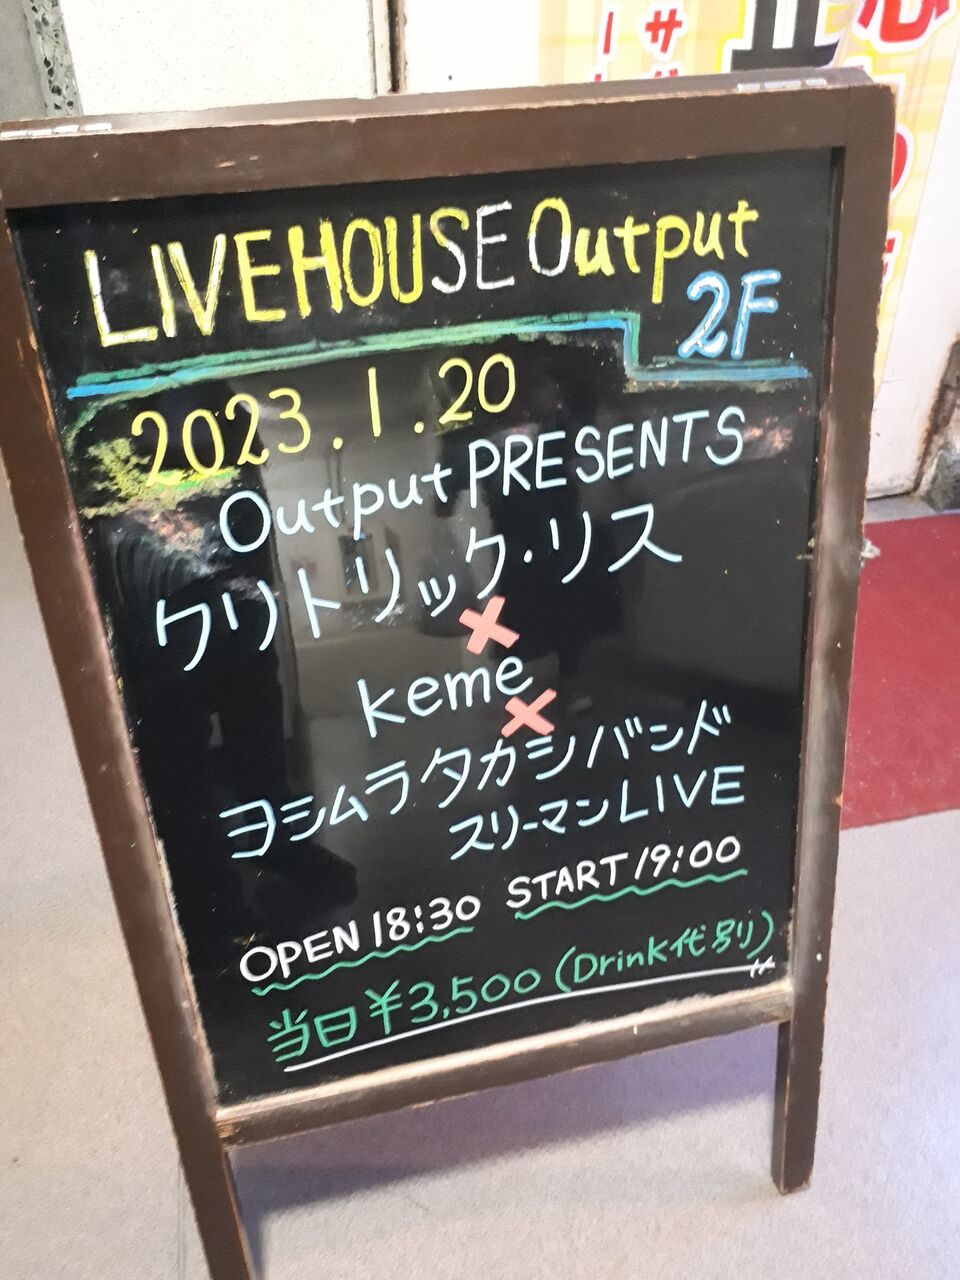 LIVEHOUSE Output
2F
2023.1.20
Output PRESENTS
クリトリック・リス
×
keme
×
ヨシムラタカシバンド
スリーマンLIVE
OPEN 18:30 START 19:00
当日¥3,500(Drink代別)